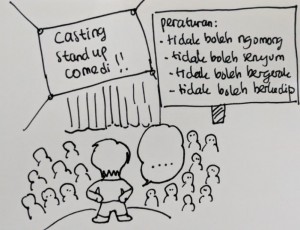 Casting
stand up
comedi !!
peraturan:
- tidak boleh ngomong
- tidak boleh senyum
- tidak boleh bergerak
- tidak boleh berkedip
....